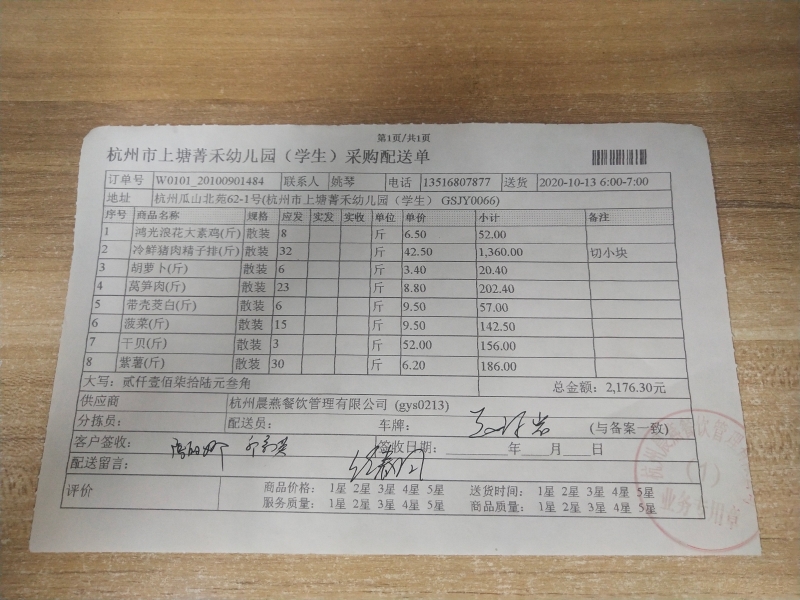 第1页/共1页
杭州市上塘菁禾幼儿园（学生）采购配送单
订单号 W0101_20100901484 联系人 姚琴 电话 13516807877 送货 2020-10-13 6:00-7:00
地址 杭州瓜山北苑62-1号(杭州市上塘菁禾幼儿园（学生） GSJY0066)
序号 商品名称 规格 应发 实发 实收 单位 单价 小计 备注
1 鸿光浪花大素鸡(斤) 散装 8 斤 6.50 52.00
2 冷鲜猪肉精子排(斤) 散装 32 斤 42.50 1,360.00 切小块
3 胡萝卜(斤) 散装 6 斤 3.40 20.40
4 莴笋肉(斤) 散装 23 斤 8.80 202.40
5 带壳茭白(斤) 散装 6 斤 9.50 57.00
6 菠菜(斤) 散装 15 斤 9.50 142.50
7 干贝(斤) 散装 3 斤 52.00 156.00
8 紫薯(斤) 散装 30 斤 6.20 186.00
大写：贰仟壹佰柒拾陆元叁角 总金额：2,176.30元
供应商 杭州晨燕餐饮管理有限公司 (gys0213)
分拣员： 配送员： 车牌： (与备案一致)
客户签收： 签收日期：______年___月___日
配送留言：
评价 商品价格： 1星 2星 3星 4星 5星 送货时间： 1星 2星 3星 4星 5星
服务质量： 1星 2星 3星 4星 5星 商品质量： 1星 2星 3星 4星 5星
(1)
业务专用章